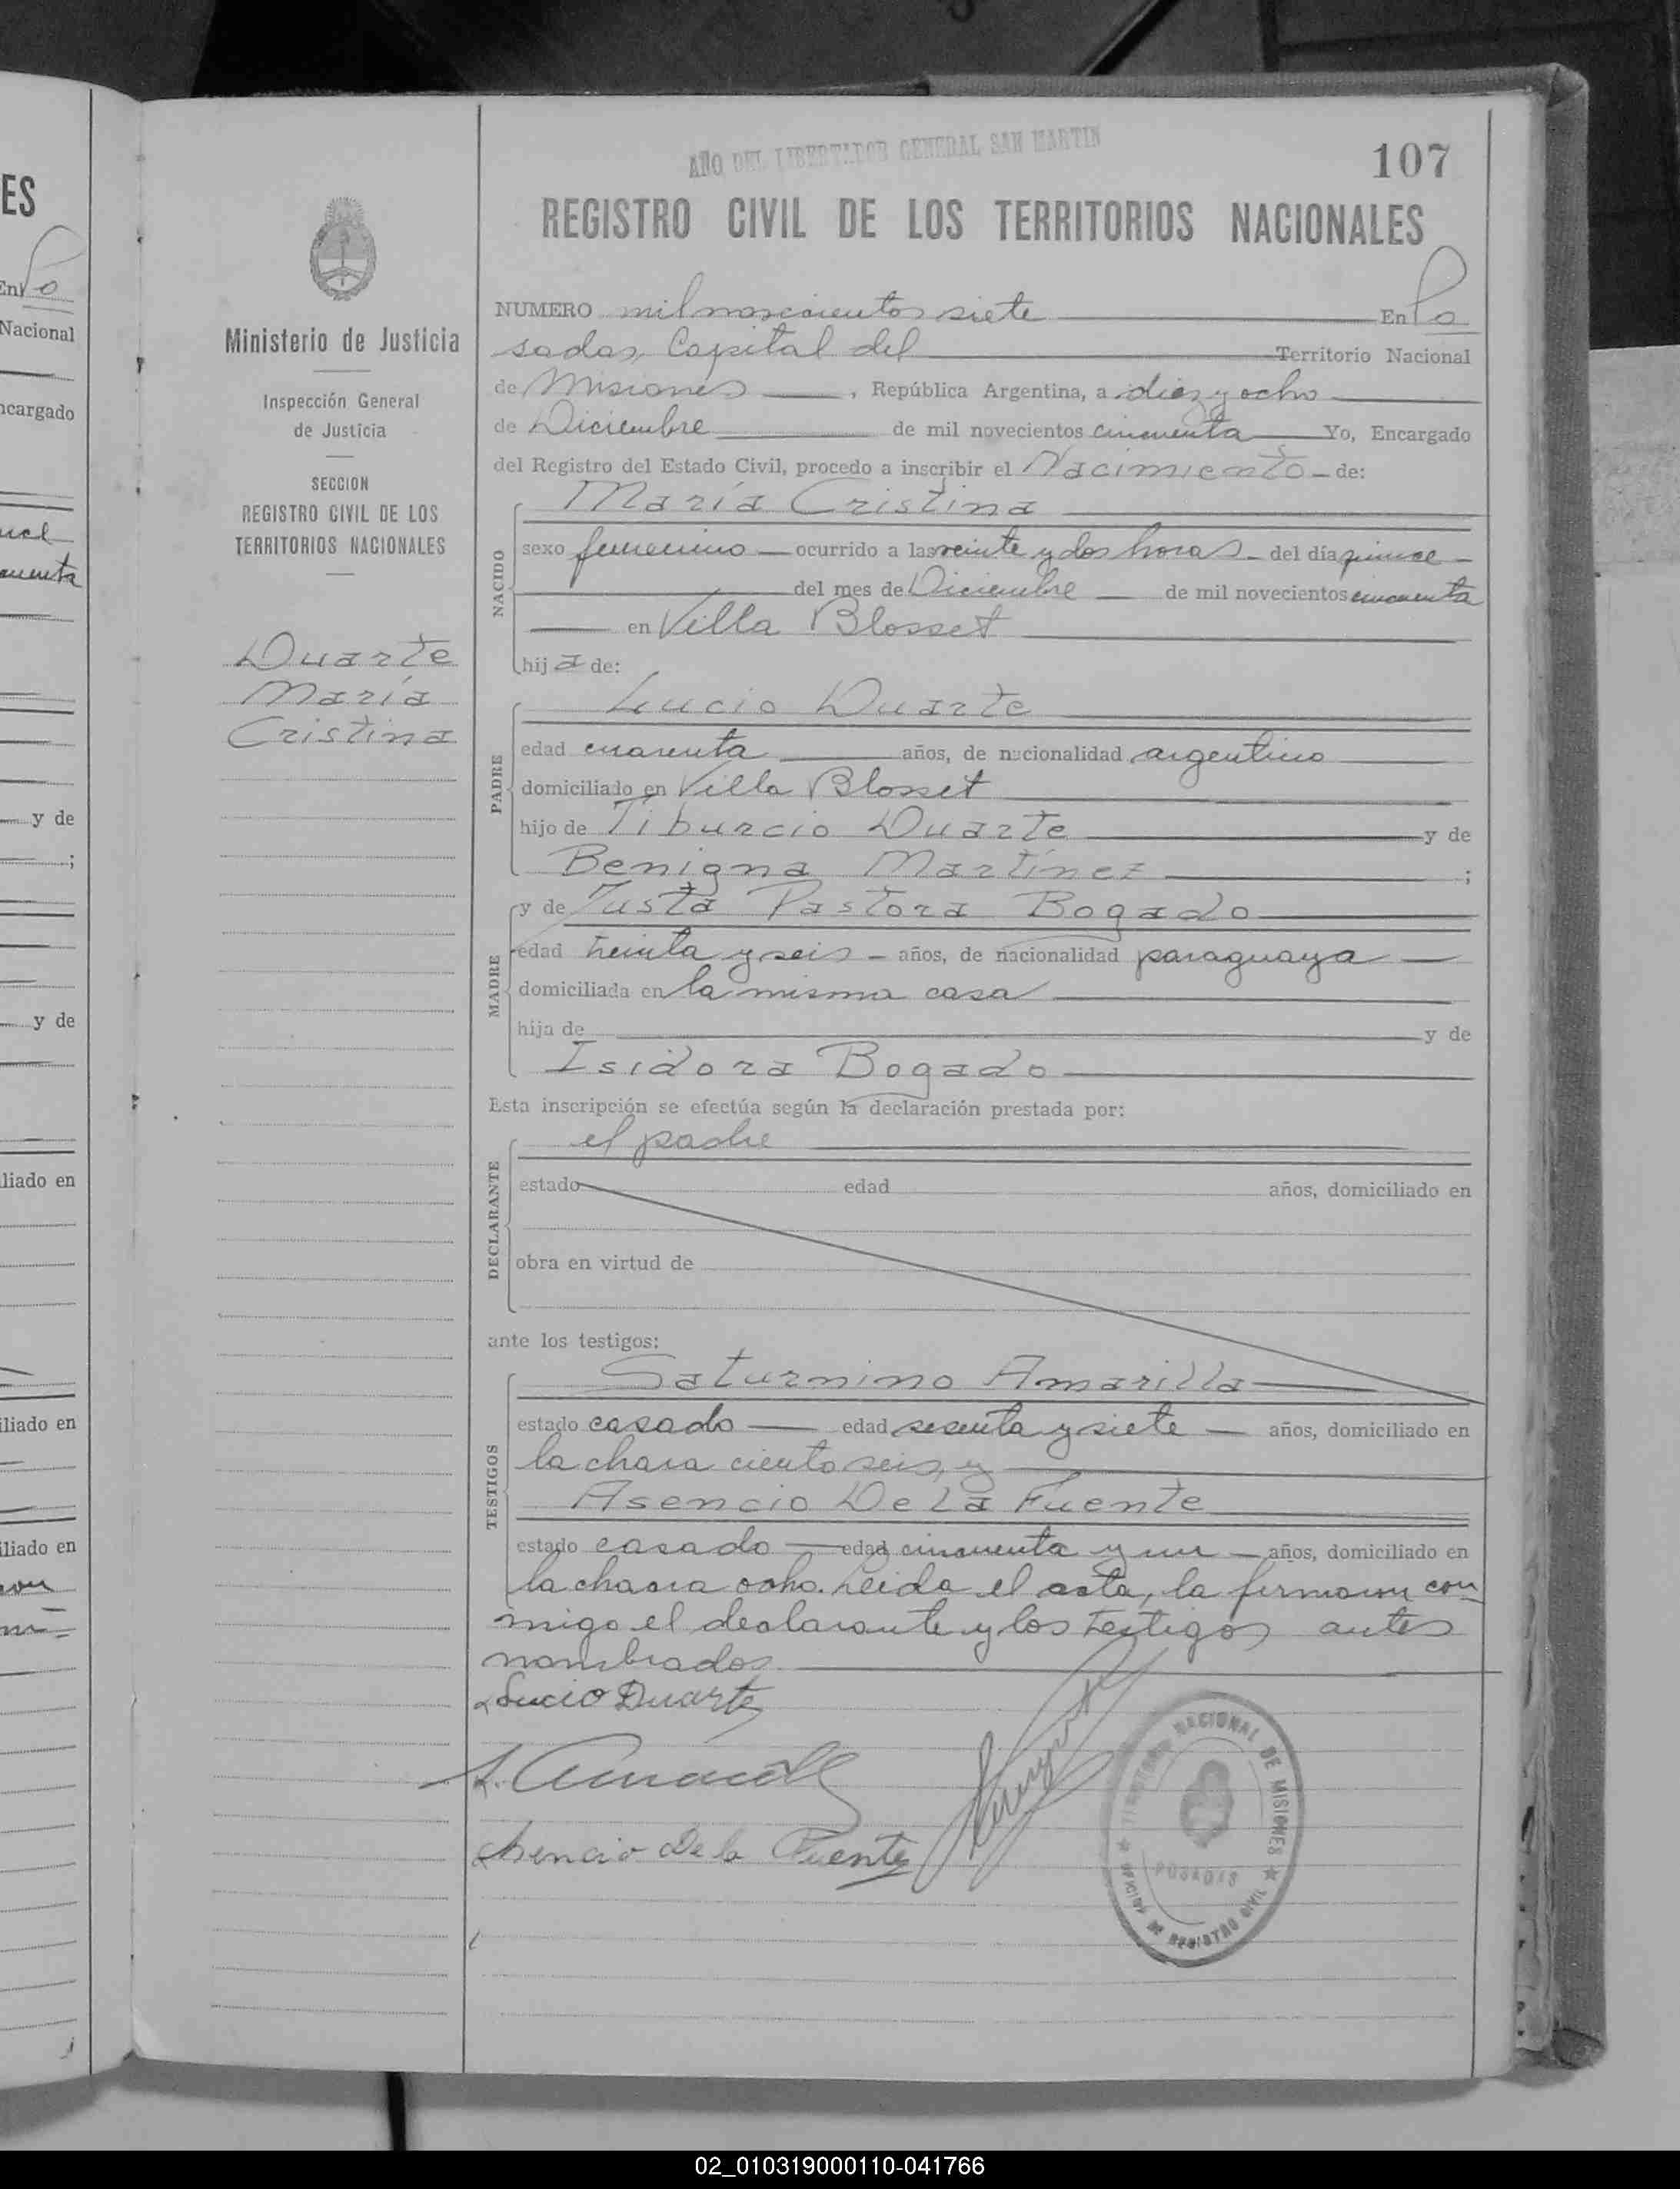 AÑO DEL LIBERTADOR GENERAL SAN MARTIN
107
REGISTRO CIVIL DE LOS TERRITORIOS NACIONALES
Ministerio de Justicia
Inspección General
de Justicia
SECCION
REGISTRO CIVIL DE LOS
TERRITORIOS NACIONALES
Duarte
María
Cristina
NUMERO mil novecientos siete En Po
sadas, Capital del Territorio Nacional
de Misiones, República Argentina, a diez y ocho
de Diciembre de mil novecientos cincuenta Yo, Encargado
del Registro del Estado Civil, procedo a inscribir el Nacimiento de:
NACIDO
María Cristina
sexo femenino ocurrido a las veinte y dos horas del día quince
del mes de Diciembre de mil novecientos cincuenta
en Villa Blosset
hija de:
PADRE
Lucio Duarte
edad cuarenta años, de nacionalidad argentino
domiciliado en Villa Blosset
hijo de Tiburcio Duarte y de
Benigna Martínez ;
MADRE
y de Justa Pastora Bogado
edad treinta y seis años, de nacionalidad paraguaya
domiciliada en la misma casa
hija de y de
Isidora Bogado
Esta inscripción se efectúa según la declaración prestada por:
DECLARANTE
el padre
estado edad años, domiciliado en
obra en virtud de
ante los testigos:
TESTIGOS
Saturnino Amarilla
estado casado edad sesenta y siete años, domiciliado en
la chacra ciento seis, y
Asencio De La Fuente
estado casado edad cincuenta y un años, domiciliado en
la chacra ocho. Leida el acta, la firmaron con
migo el declarante y los testigos antes
nombrados
Lucio Duarte
S. Amarilla
Asencio De la Fuente
TERRITORIO NACIONAL DE MISIONES
POSADAS
OFICINA DE REGISTRO CIVIL
ES
En Po
Nacional
ncargado
cuenta
y de
;
y de
liado en
iliado en
iliado en
02_010319000110-041766